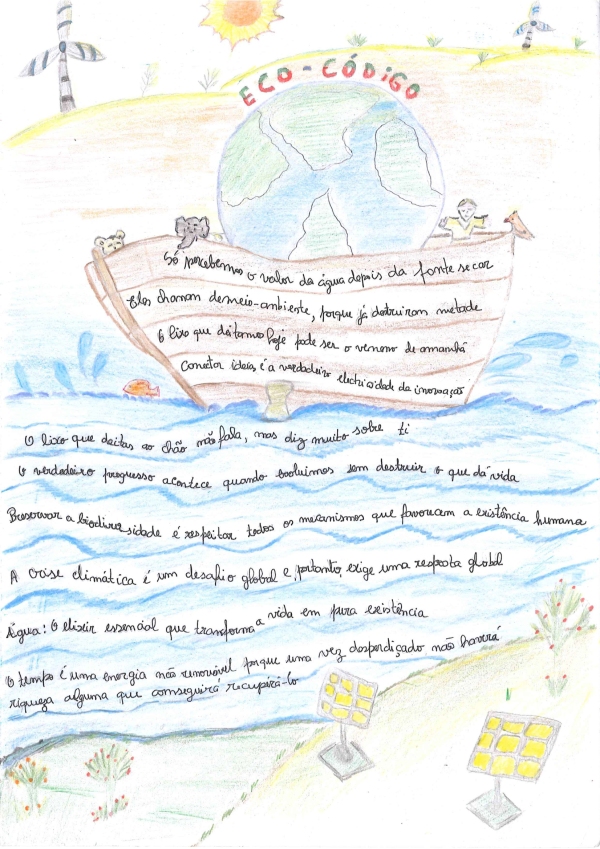 ECO-CÓDIGO
Só percebemos o valor da água depois da fonte secar
Eles chamam de meio-ambiente, porque já destruiram metade
O lixo que deitamos hoje pode ser o veneno de amanhã
Conectar ideias é a verdadeira electricidade da inovação
O lixo que deitas ao chão não fala, mas diz muito sobre ti
O verdadeiro progresso acontece quando evoluimos sem destruir o que dá vida
Preservar a biodiversidade é respeitar todos os mecanismos que favorecem a existência humana
A crise climática é um desafio global e, portanto, exige uma resposta global
Água: O elixir essencial que transforma a vida em pura existência
O tempo é uma energia não renovável porque uma vez desperdiçado não haverá
riqueza alguma que conseguirá recuperá-lo